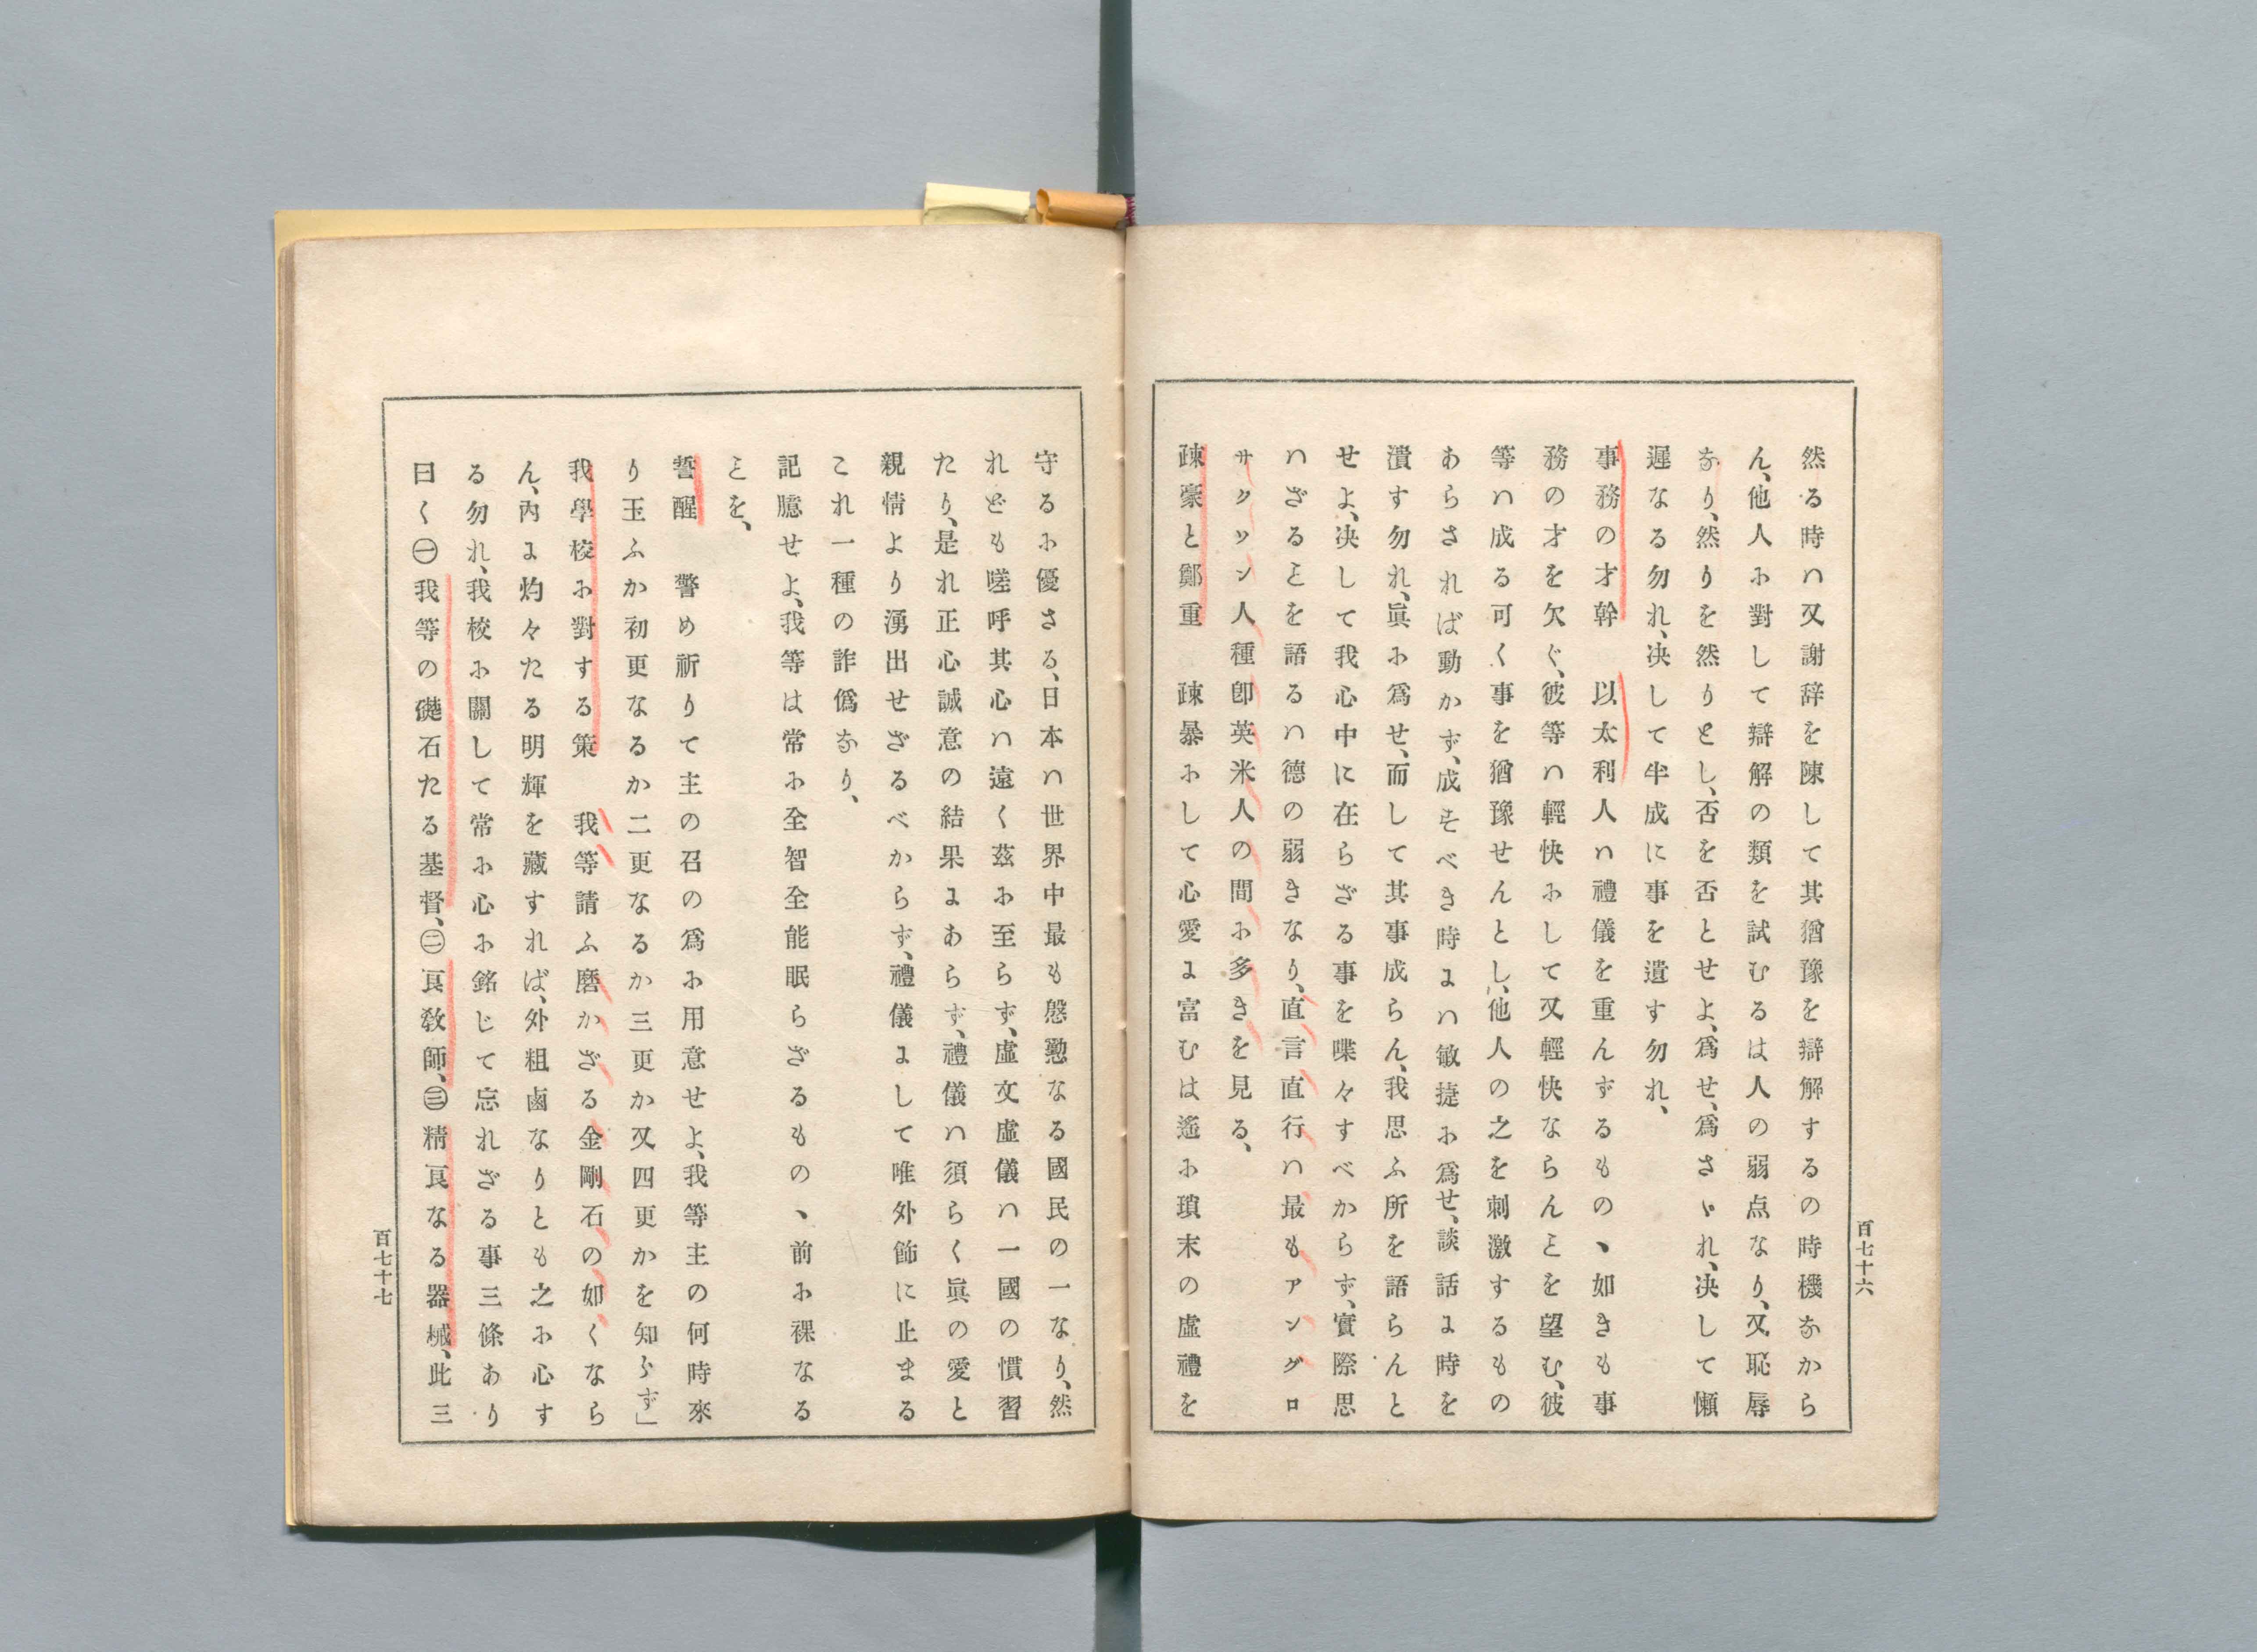 然る時ハ又謝辞を陳して其猶豫を辯解するの時機なから
ん、他人に對して辯解の類を試むるは人の弱点なり、又恥辱
なり、然りを然りとし、否を否とせよ、爲せ、爲さゞれ、決して懶
遲なる勿れ、決して半成に事を遺す勿れ、
事務の才幹　以太利人ハ禮儀を重んずるもの、如きも事
務の才を欠ぐ、彼等ハ輕快にして又輕快ならんヿを望む、彼
等ハ成る可く事を猶豫せんとし、他人の之を刺激するもの
あらされば動かず、成すべき時にハ敏捷に爲せ、談話に時を
潰す勿れ、眞に爲せ、而して其事成らん、我思ふ所を語らんと
せよ、決して我心中に在らざる事を喋々すべからず、實際思
ハざるヿを語るハ德の弱きなり、直言直行ハ最もアングロ
サクソン人種卽英米人の間に多きを見る、
疎豪と鄭重　疎暴にして心愛に富むは遙に瑣末の虛禮を
百七十六
守るに優さる、日本ハ世界中最も慇懃なる國民の一なり、然
れども嗟呼其心ハ遠く茲に至らず、虛文虛儀ハ一國の慣習
たり、是れ正心誠意の結果にあらず、禮儀ハ須らく眞の愛と
親情より湧出せざるべからず、禮儀にして唯外飾に止まる
これ一種の詐僞なり、
記臆せよ、我等は常に全智全能眠らざるもの、前に裸なる
ヿを、
誓醒　警め祈りて主の召の爲に用意せよ、我等主の何時來
り玉ふか初更なるか二更なるか三更か又四更かを知らず」
我學校に對する策　我等請ふ磨かざる金剛石の如くなら
ん、內に灼々たる明輝を藏すれば、外粗鹵なりとも之に心す
る勿れ、我校に關して常に心に銘じて忘れざる事三條あり
曰く㊀我等の礎石たる基督、㊁良敎師、㊂精良なる器械、此三
百七十七